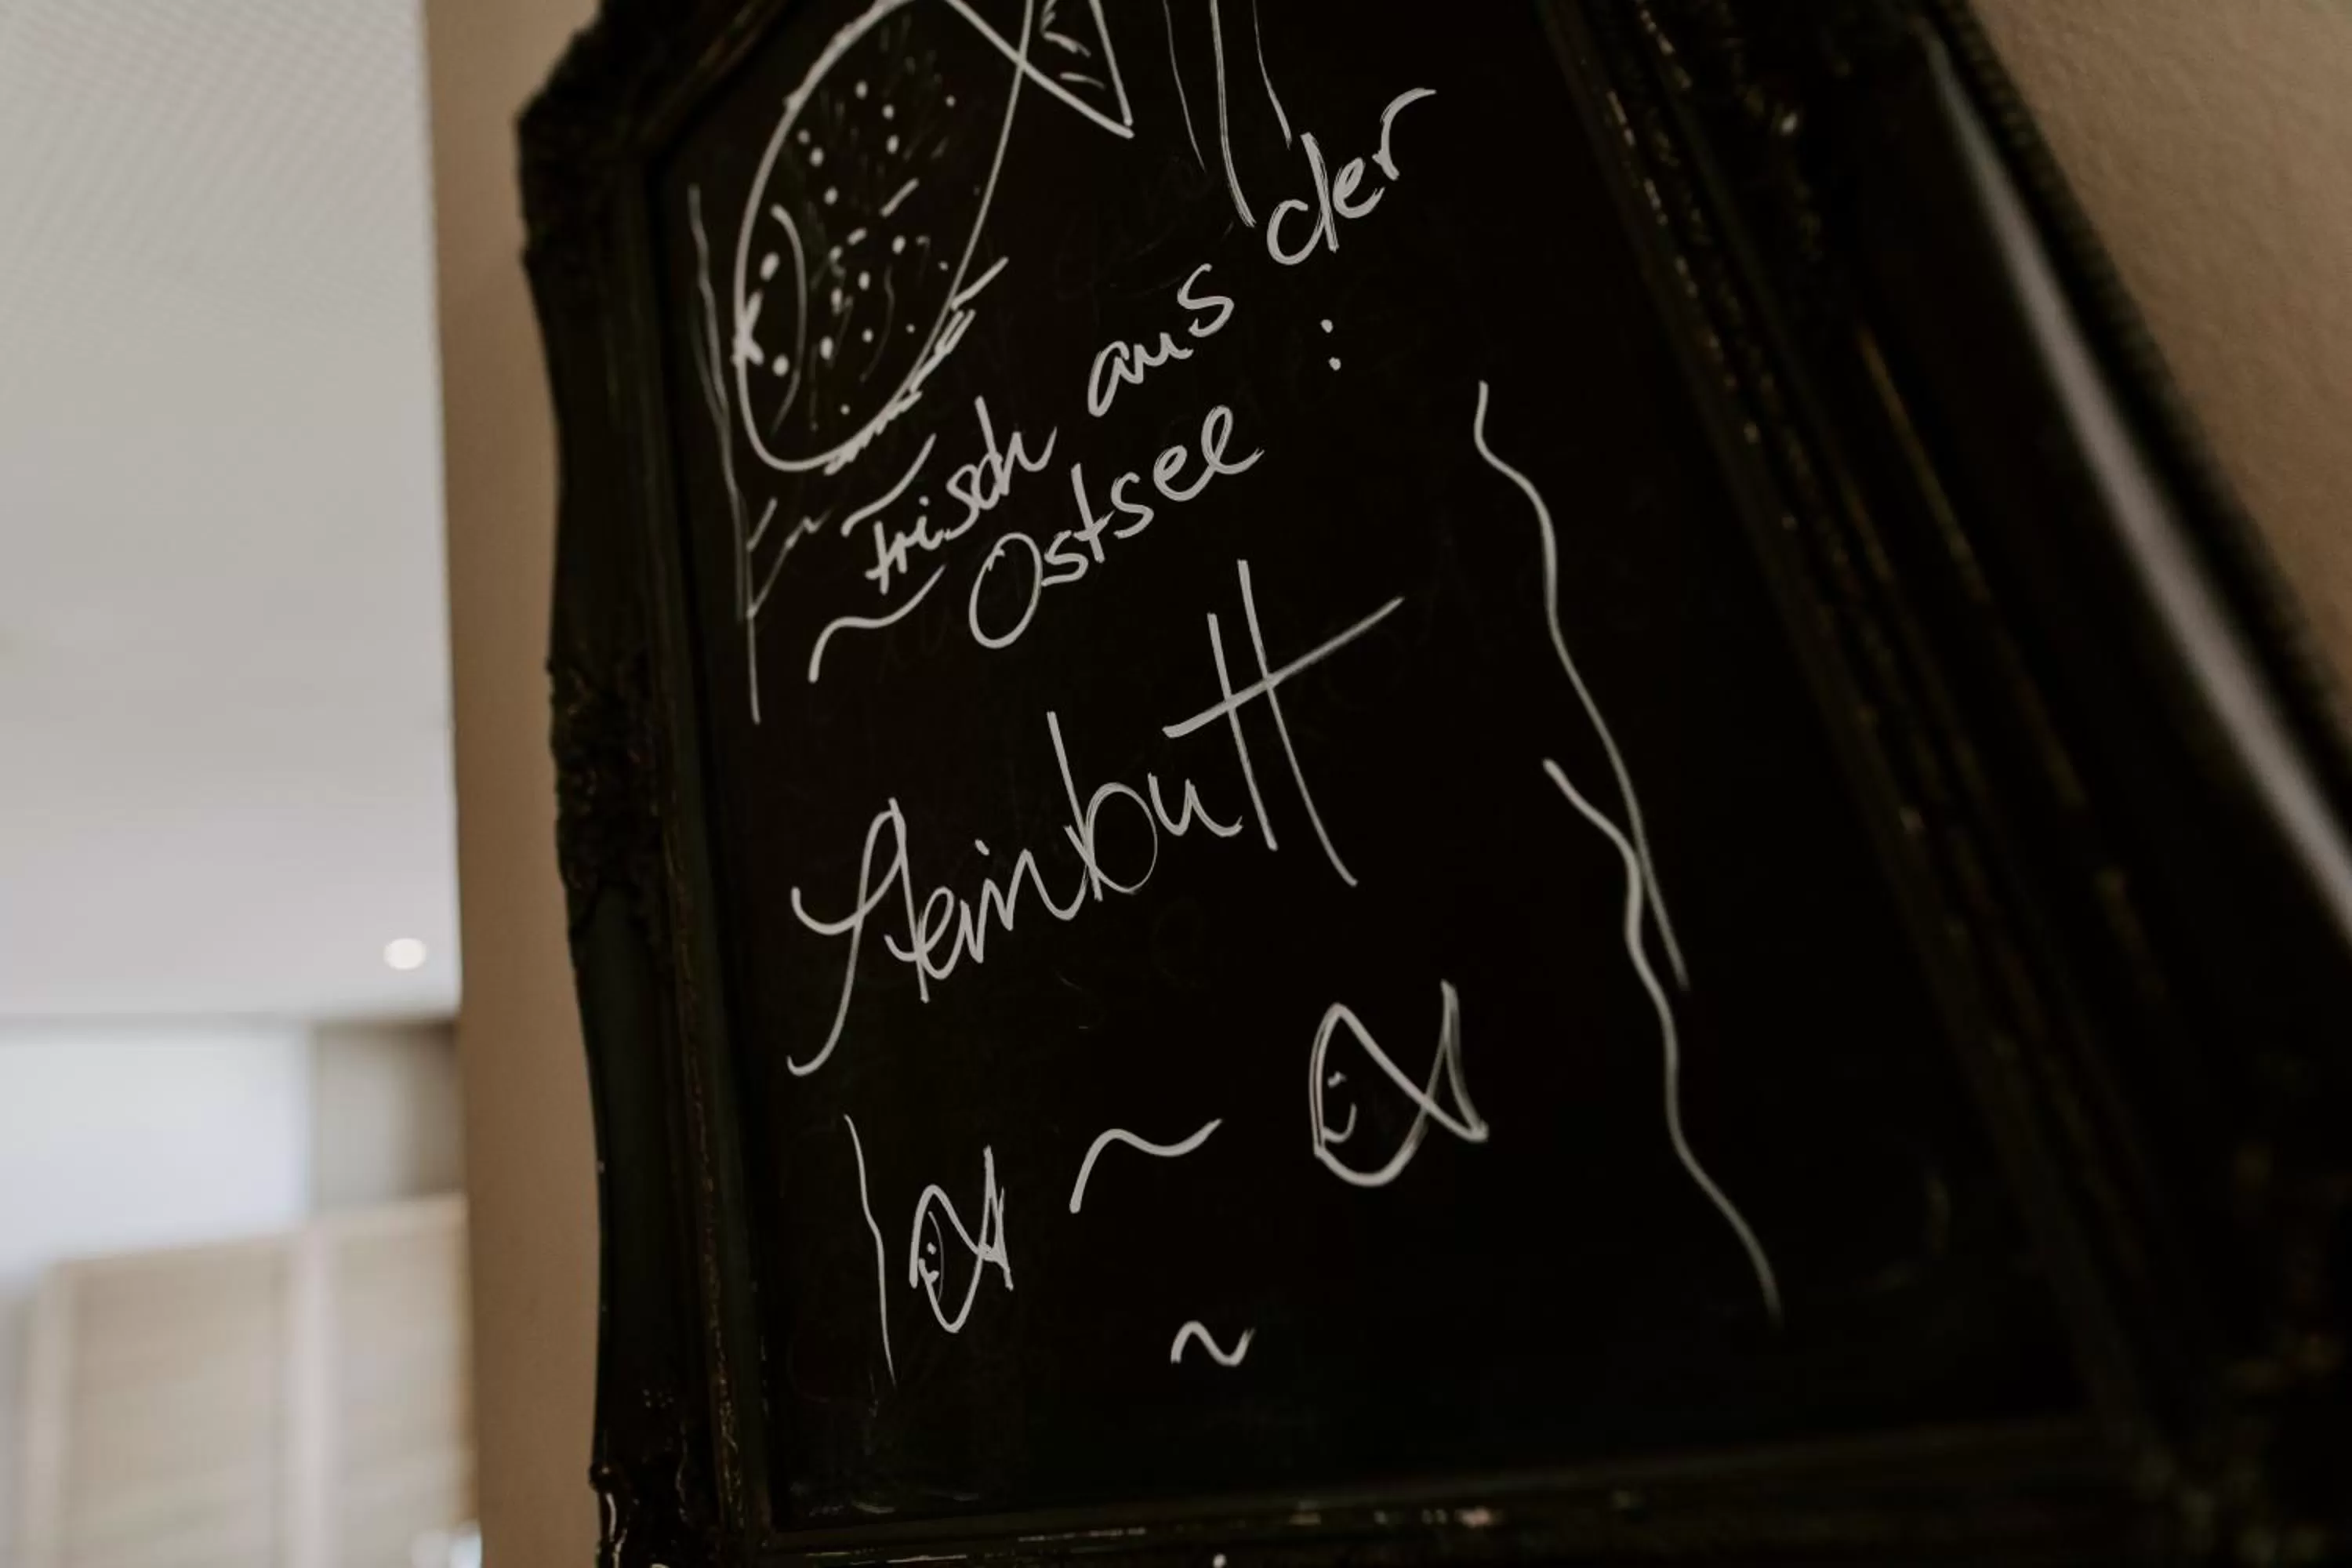 frisch aus der
Ostsee :
Steinbutt